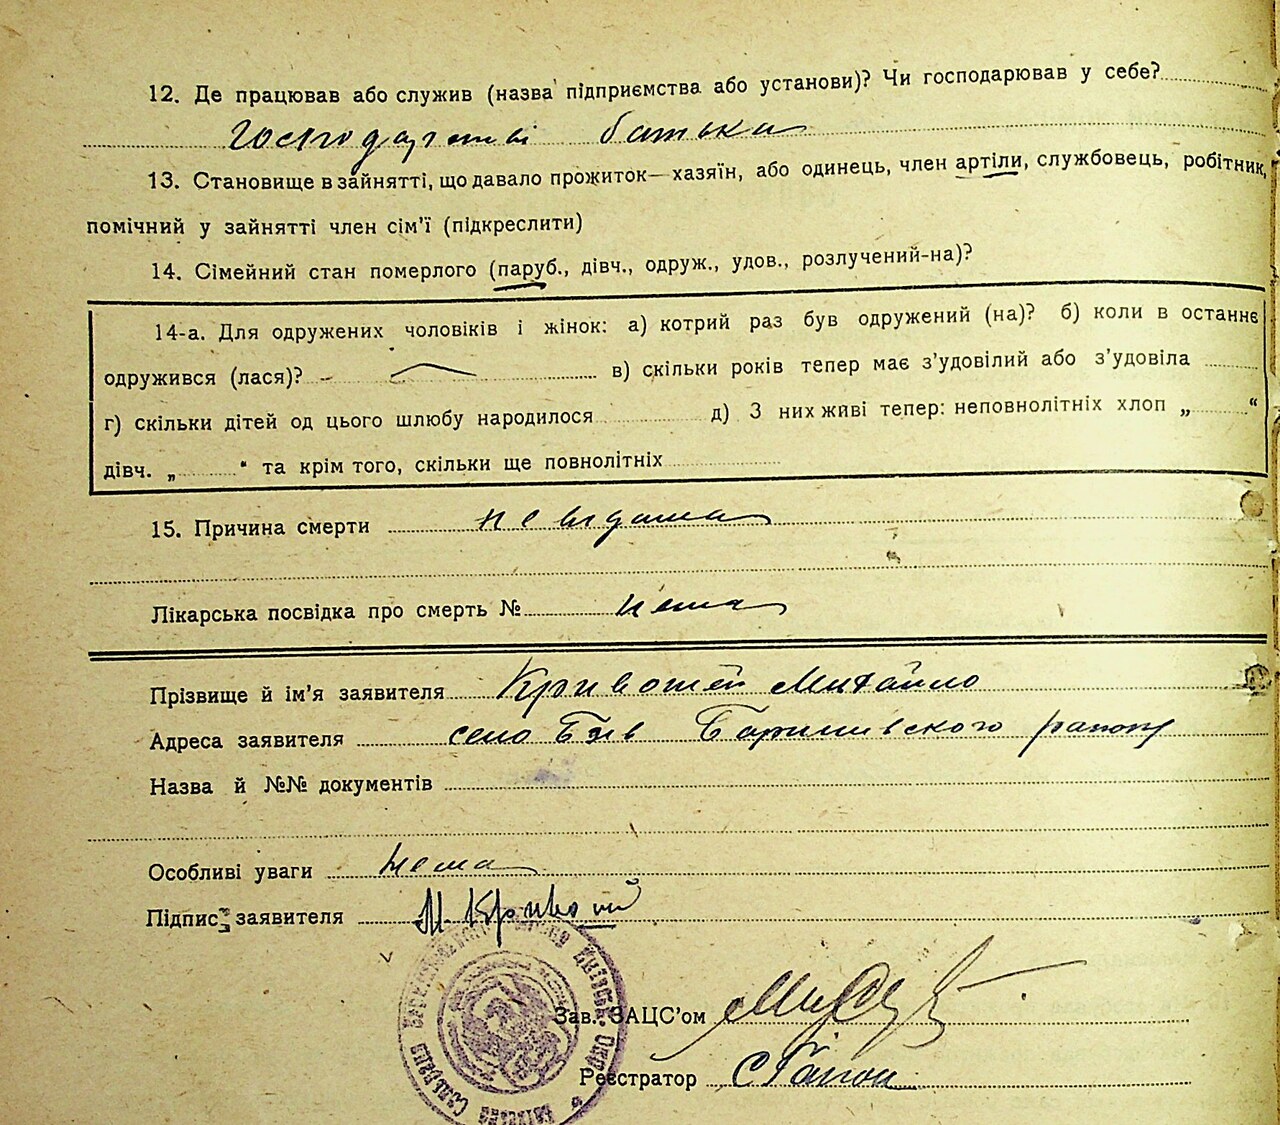 12. Де працював або служив (назва підприємства або установи)? Чи господарював у себе?
господарстві батька
13. Становище в зайнятті, що давало прожиток— хазяїн, або одинець, член артіли, службовець, робітник,
помічний у зайнятті член сім'ї (підкреслити)
14. Сімейний стан померлого (паруб., дівч., одруж., удов., розлучений-на)?
14-а. Для одружених чоловіків і жінок: а) котрий раз був одружений (на)? б) коли в останнє
одружився (лася)? в) скільки років тепер має з'удовілий або з'удовіла
г) скільки дітей од цього шлюбу народилося д) З них живі тепер: неповнолітніх хлоп „ “
дівч. „ “ та крім того, скільки ще повнолітніх
15. Причина смерти невідома
Лікарська посвідка про смерть № нема
Прізвище й ім'я заявителя Кривошей Михайло
Адреса заявителя село Бзів Баришівского району
Назва й №№ документів
Особливі уваги нема
Підпис заявителя М. Кривоший
Зав. ЗАЦС'ом
Реєстратор С Гапон